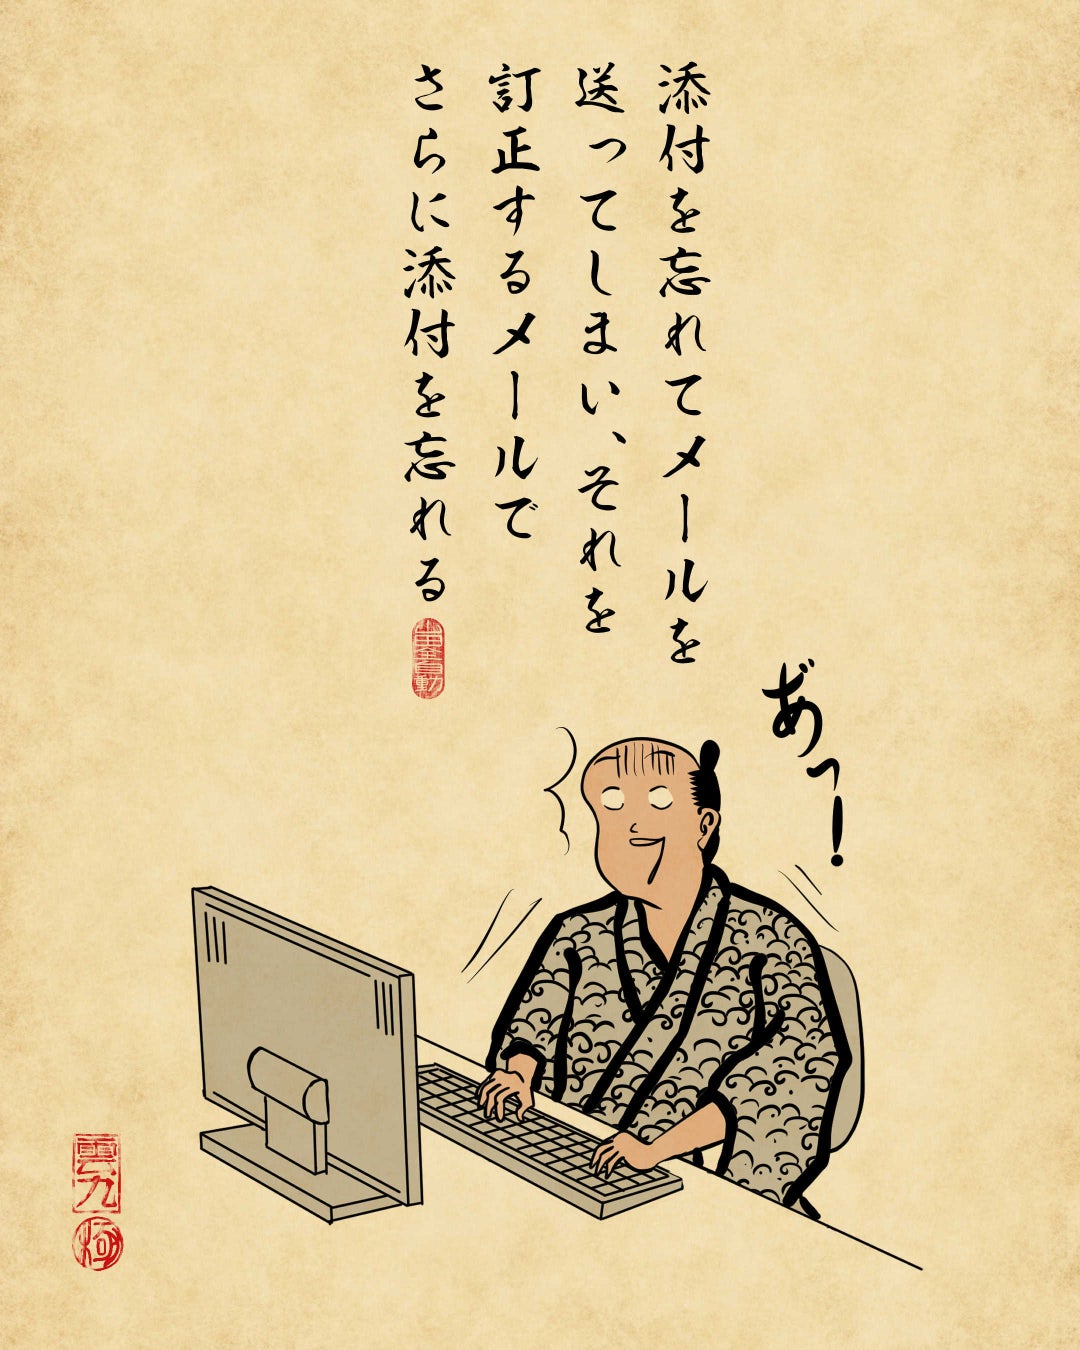 添付を忘れてメールを
送ってしまい、それを
訂正するメールで
さらに添付を忘れる
あ゛っ!
雲九
極